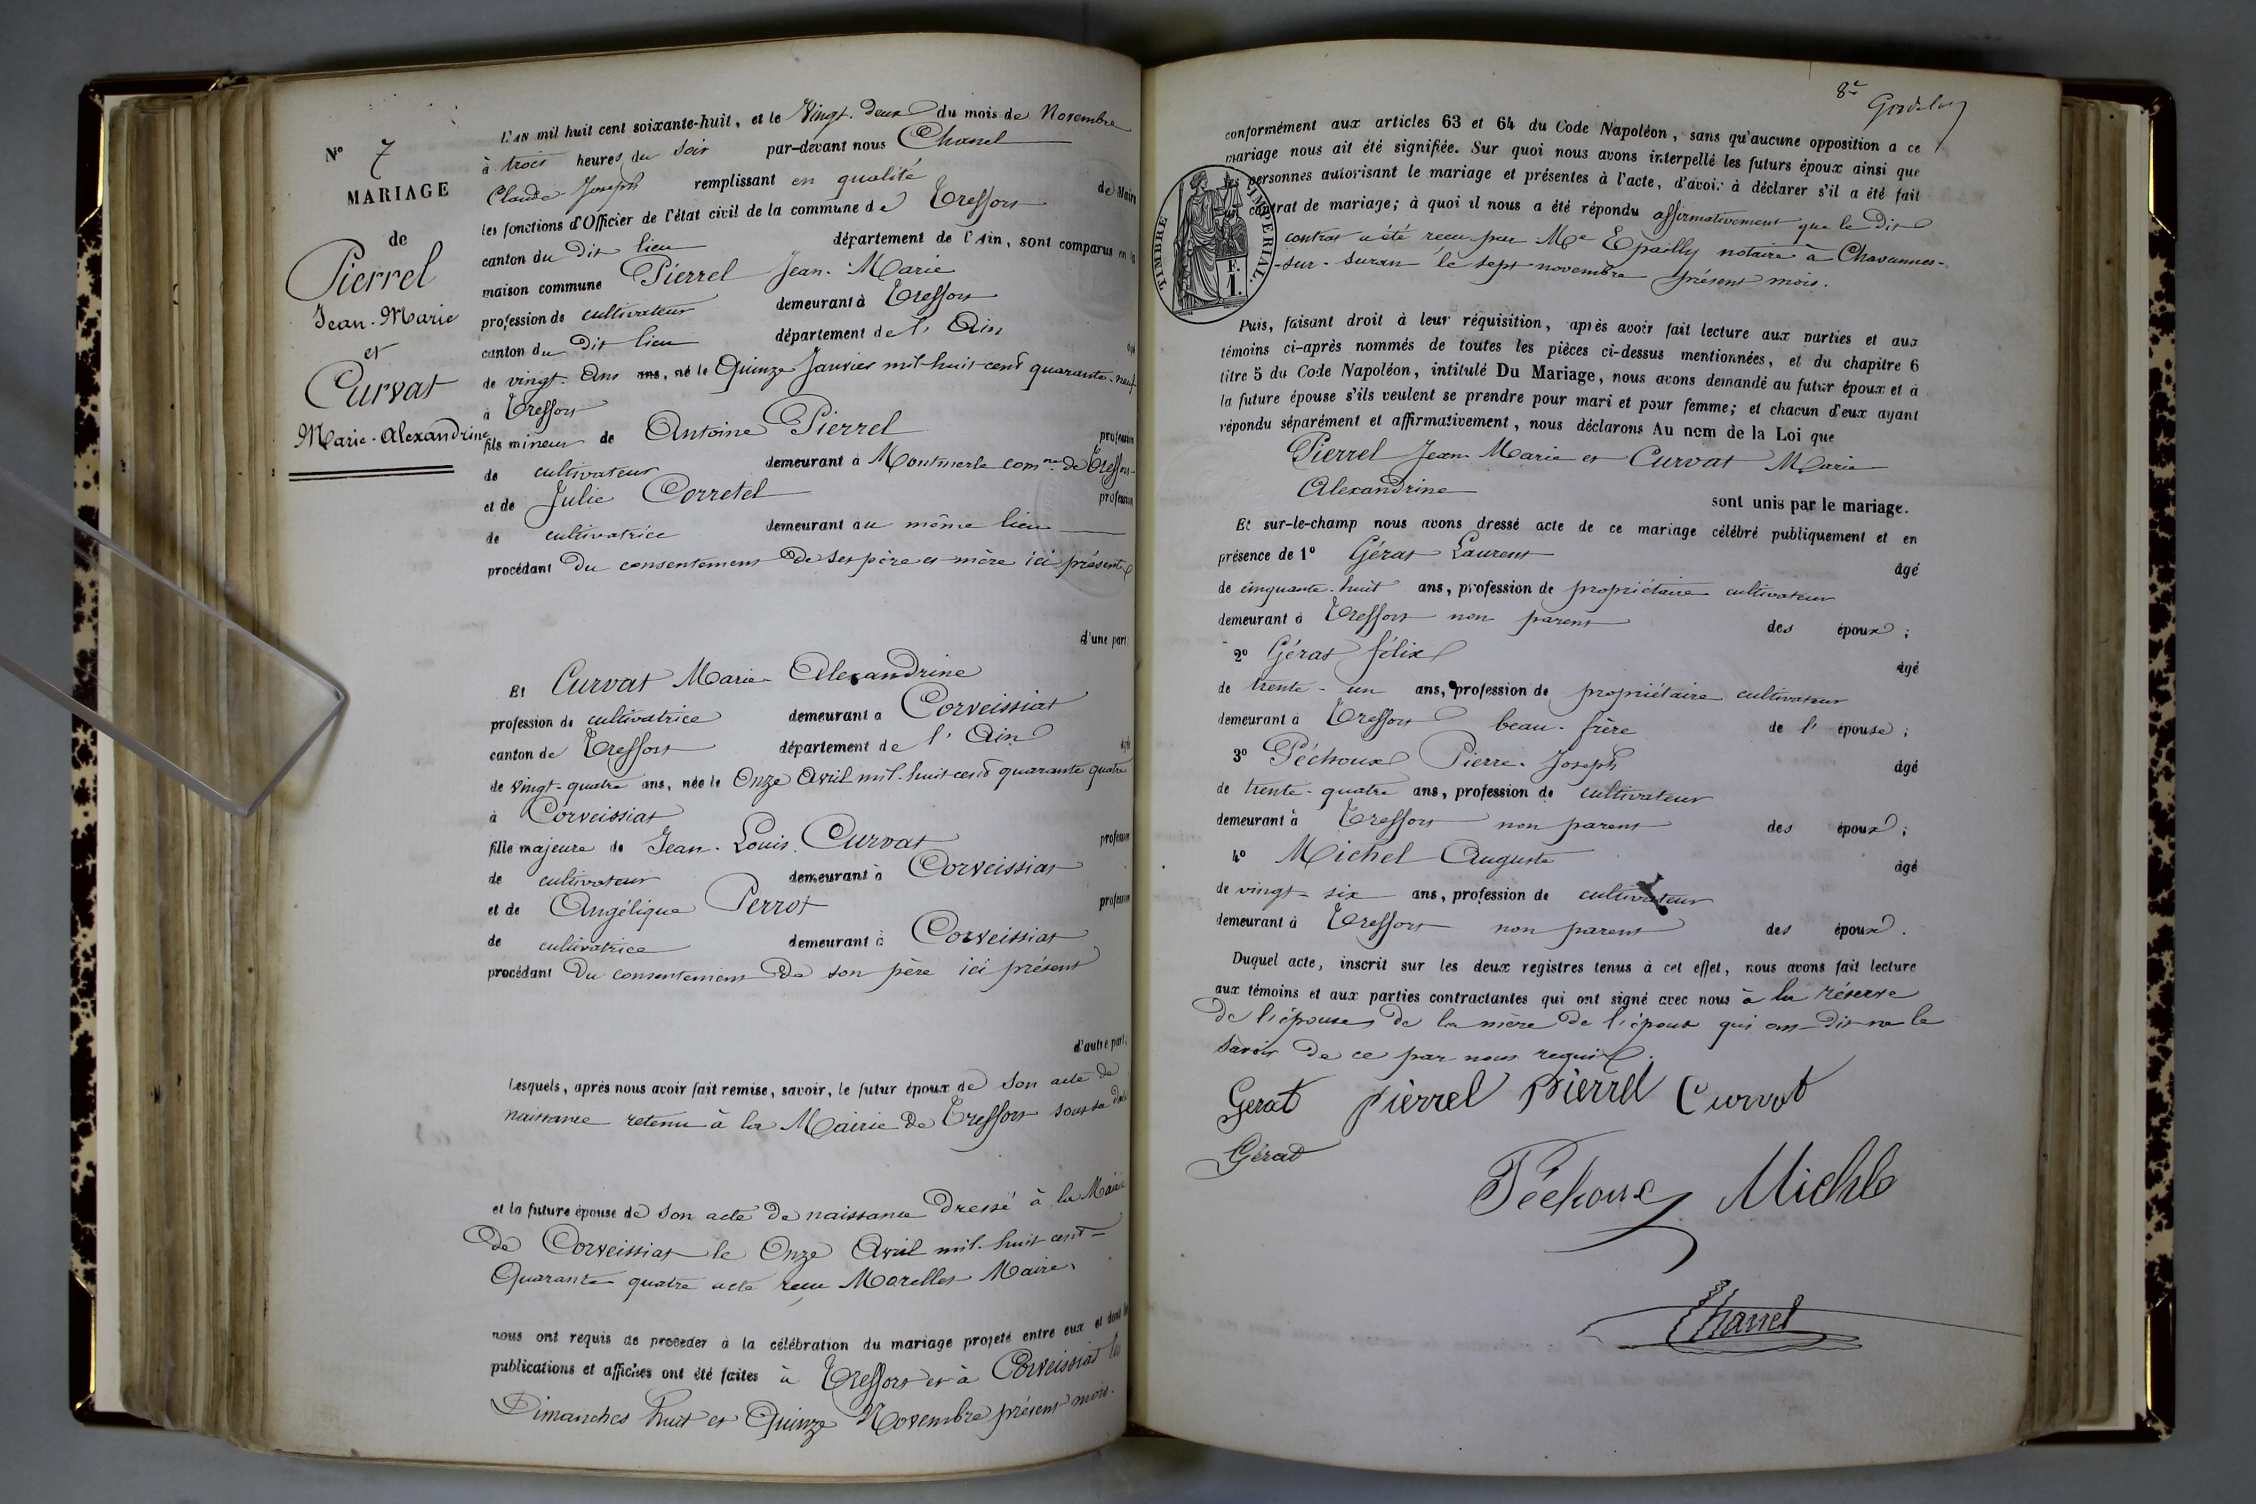 N° 7
MARIAGE
de
Pierrel
Jean-Marie
et
Curvat
Marie-Alexandrine
L'AN mil huit cent soixante-huit, et le Vingt-deux du mois de Novembre
à trois heures du soir par-devant nous Chanel
Claude Joseph remplissant en qualité de Maire
les fonctions d'Officier de l'état civil de la commune de Treffort
canton du dit lieu département de l'Ain, sont comparus en la
maison commune Pierrel Jean-Marie
profession de cultivateur demeurant à Treffort
canton du dit lieu département de l'Ain âgé
de vingt ans ans, né le Quinze Janvier mil huit cent quarante-neuf
à Treffort
fils mineur de Antoine Pierrel profession
de cultivateur demeurant à Montmerle comne de Treffort
et de Julie Corretel profession
de cultivatrice demeurant au même lieu
procédant du consentement de ses père et mère ici présents
d'une part
Et Curvat Marie-Alexandrine
profession de cultivatrice demeurant à Corveissiat
canton de Treffort département de l'Ain âgée
de vingt-quatre ans, née le Onze Avril mil-huit-cent quarante quatre
à Corveissiat
fille majeure de Jean-Louis Curvat profession
de cultivateur demeurant à Corveissiat
et de Angélique Perrot profession
de cultivatrice demeurant à Corveissiat
procédant du consentement de son père ici présent
d'autre part.
Lesquels, après nous avoir fait remise, savoir, le futur époux de son acte de
naissance retenu à la Mairie de Treffort sous sa date
et la future épouse de son acte de naissance dressé à la Mairie
de Corveissiat le Onze Avril mil-huit-cent-
Quarante quatre acte reçu Morellet Maire,
nous ont requis de procéder à la célébration du mariage projeté entre eux et dont les
publications et affiches ont été faites à Treffort et à Corveissiat les
Dimanches huit et Quinze Novembre présent mois.
8e
conformément aux articles 63 et 64 du Code Napoléon, sans qu'aucune opposition a ce
mariage nous ait été signifiée. Sur quoi nous avons interpellé les futurs époux ainsi que
les personnes autorisant le mariage et présentes à l'acte, d'avoir à déclarer s'il a été fait
contrat de mariage; à quoi il nous a été répondu affirmativement que le dit
contrat a été reçu par Me Epailly notaire à Chavannes-
-sur-Suran le sept novembre présent mois.
TIMBRE IMPERIAL.
F.
1.
Puis, faisant droit à leur réquisition, après avoir fait lecture aux parties et aux
témoins ci-après nommés de toutes les pièces ci-dessus mentionnées, et du chapitre 6
titre 5 du Code Napoléon, intitulé Du Mariage, nous avons demandé au futur époux et à
la future épouse s'ils veulent se prendre pour mari et pour femme; et chacun d'eux ayant
répondu séparément et affirmativement, nous déclarons Au nom de la Loi que
Pierrel Jean-Marie et Curvat Marie
Alexandrine
sont unis par le mariage.
Et sur-le-champ nous avons dressé acte de ce mariage célébré publiquement et en
présence de 1° Gérat Laurent âgé
de cinquante-huit ans, profession de propriétaire cultivateur
demeurant à Treffort non parent des époux;
2° Gérat félix âgé
de trente-un ans, profession de propriétaire cultivateur
demeurant à Treffort beau-frère de l'épouse;
3° Péchoux Pierre-Joseph âgé
de trente-quatre ans, profession de cultivateur
demeurant à Treffort non parent des époux;
4° Michel Auguste âgé
de vingt-six ans, profession de cultivateur
demeurant à Treffort non parent des époux.
Duquel acte, inscrit sur les deux registres tenus à cet effet, nous avons fait lecture
aux témoins et aux parties contractantes qui ont signé avec nous à la réserve
de l'épouse, de la mère de l'époux qui ont dit ne le
savoir de ce par nous requis.
Gerat Pierrel Pierrel Curvat
Gérat
Péchoux Michel
Chanel